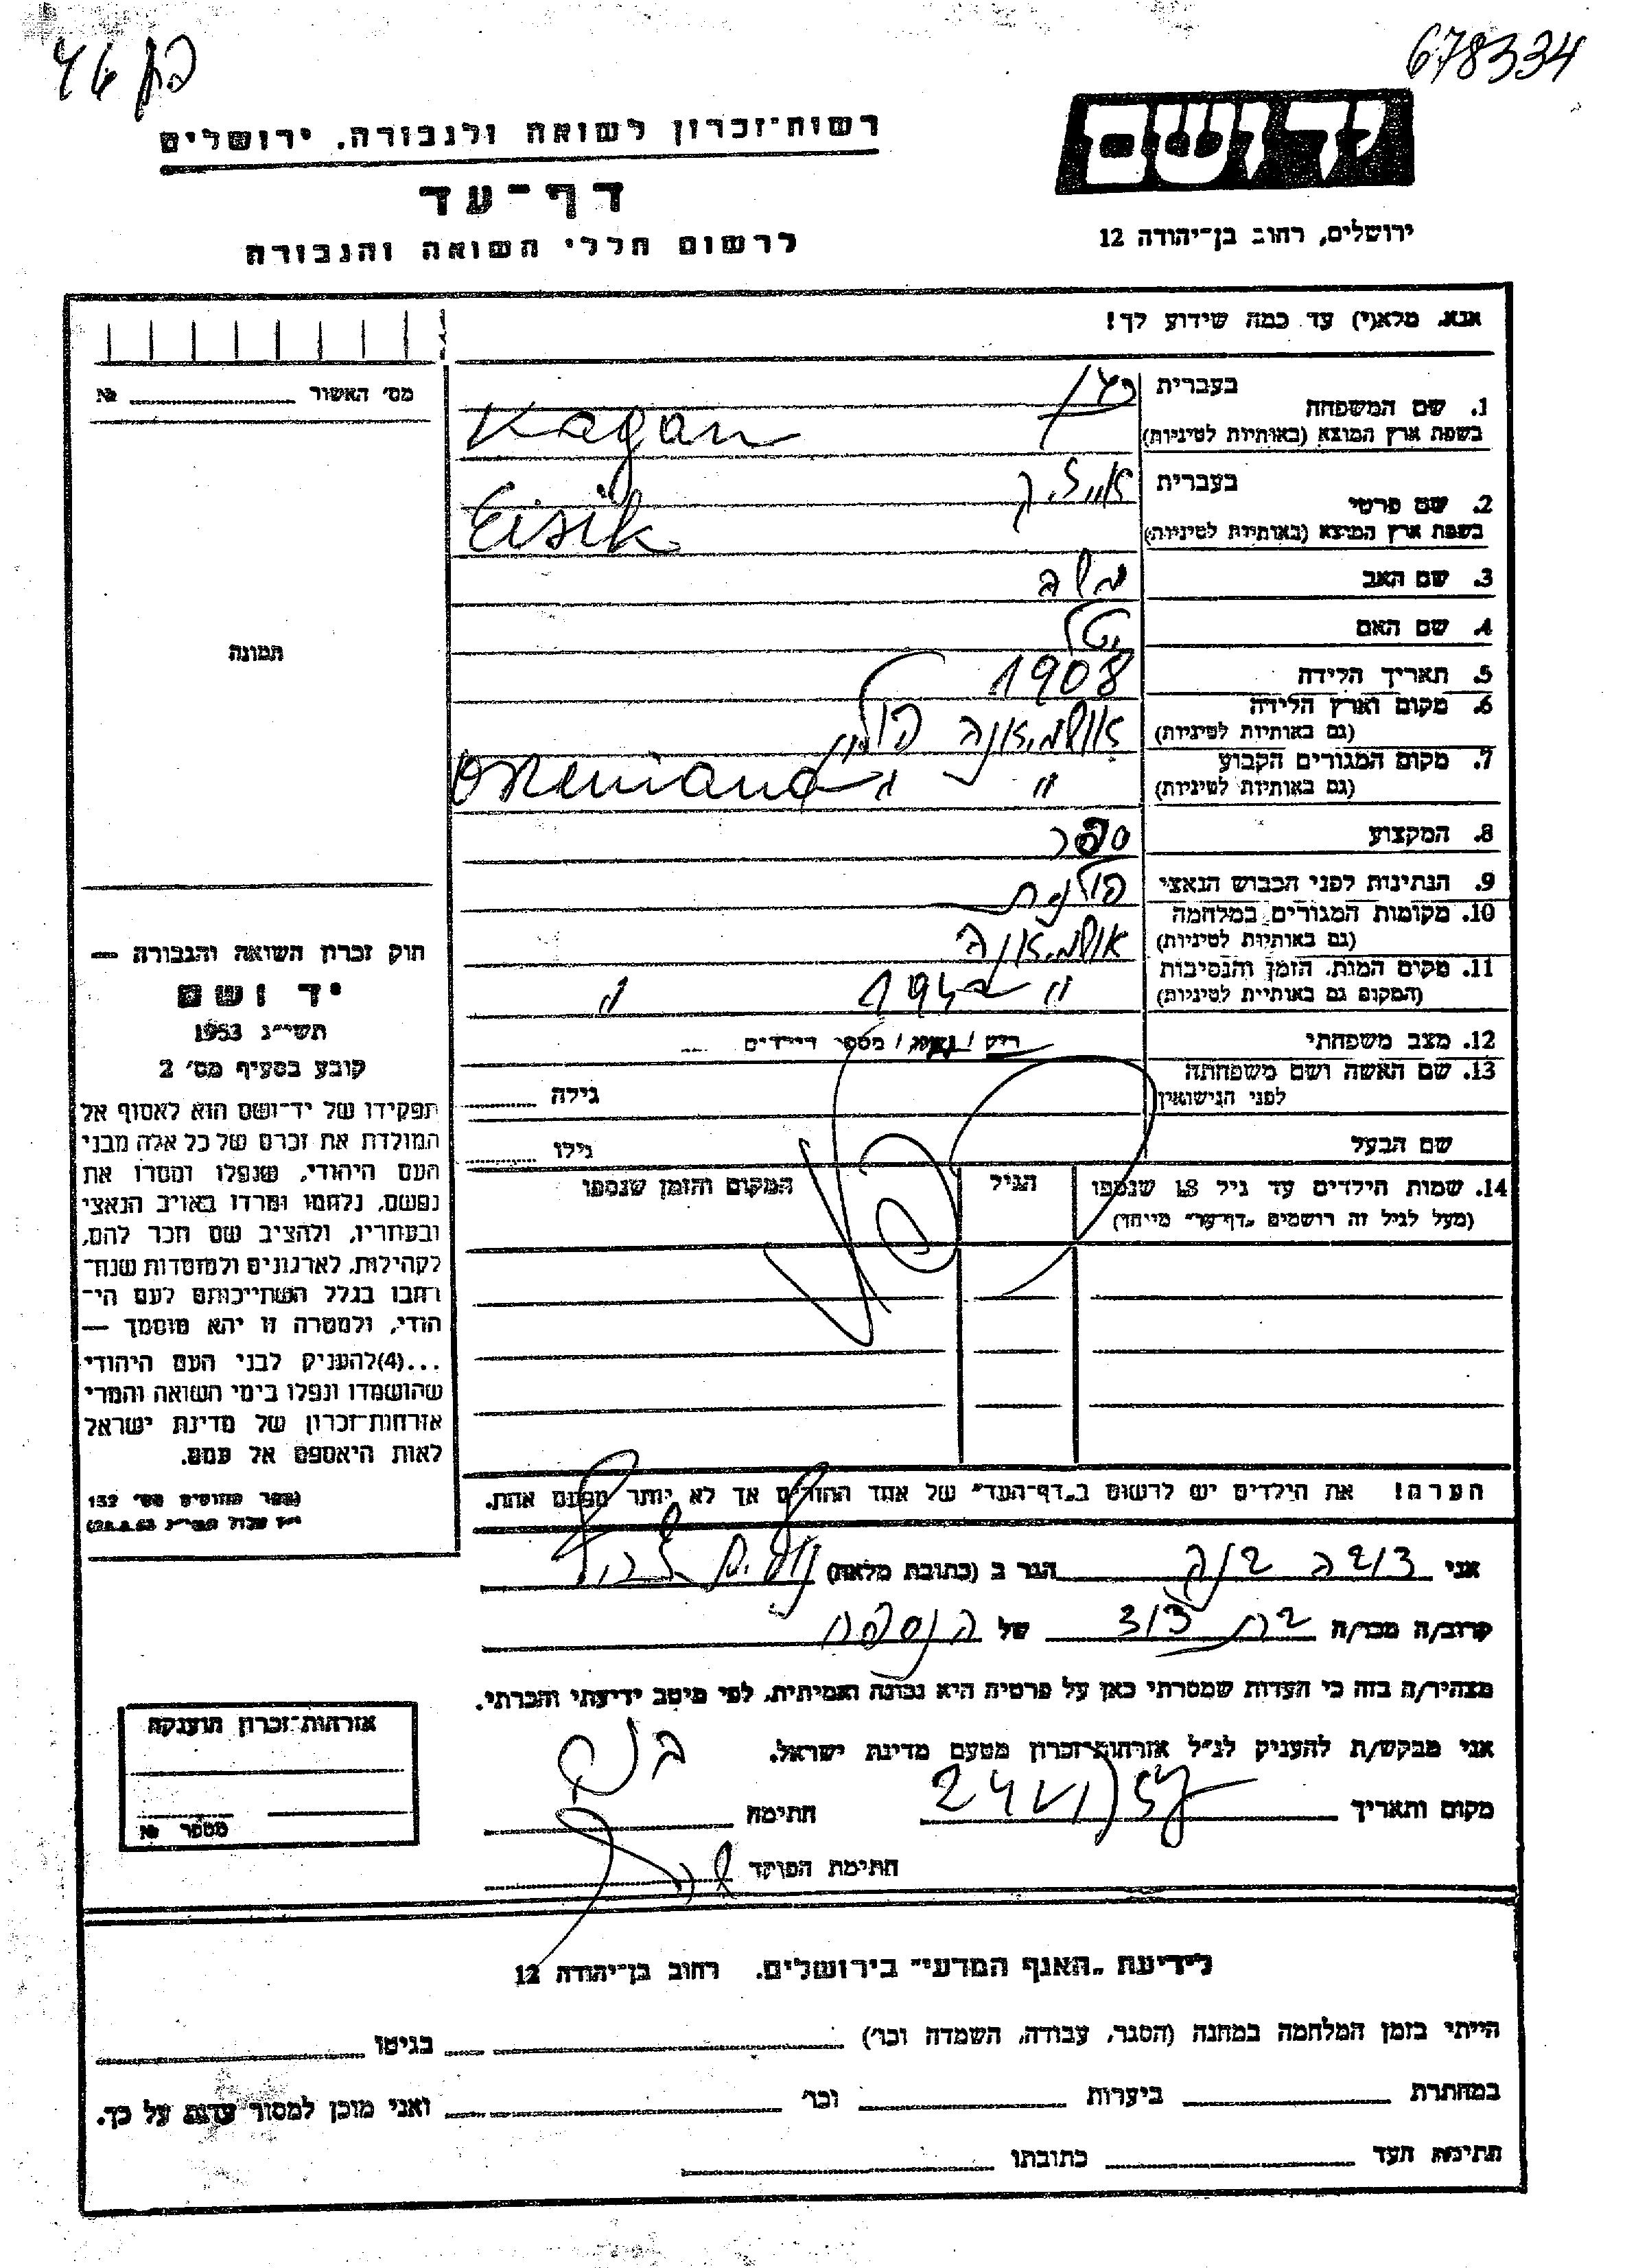 678334
כהן 46
יד ושם
רשות־זכרון לשואה ולגבורה, ירושלים
דף־עד
לרשום חללי השואה והגבורה
ירושלים, רחוב בן־יהודה 12
אנא, מלא(י) עד כמה שידוע לך!
מס' האשור № 
תמונה
1. שם המשפחה
בעברית כהן
בשפת ארץ המוצא (באותיות לטיניות) Kagan
2. שם פרטי
בעברית אייזיק
בשפת ארץ המוצא (באותיות לטיניות) Eisik
3. שם האב משה
4. שם האם
5. תאריך הלידה 1908
6. מקום וארץ הלידה
(גם באותיות לטיניות) אושמיאנה פולין
7. מקום המגורים הקבוע
(גם באותיות לטיניות) " " Osmiana
8. המקצוע ספר
9. הנתינות לפני הכבוש הנאצי פולנית
10. מקומות המגורים במלחמה
(גם באותיות לטיניות) אושמיאנה
11. מקום המות, הזמן והנסיבות
(המקום גם באותיות לטיניות) " 1942 "
12. מצב משפחתי רווק / נשוי / מספר הילדים
13. שם האשה ושם משפחתה
לפני הנישואין גילה
שם הבעל גילו
14. שמות הילדים עד גיל 18 שנספו הגיל המקום והזמן שנספו
(מעל לגיל זה רושמים "דף־עד" מיוחד)
חוק זכרון השואה והגבורה —
יד ושם
תשי"ג 1953
קובע בסעיף מס' 2
תפקידו של יד־ושם הוא לאסוף אל
המולדת את זכרם של כל אלה מבני
העם היהודי, שנפלו ומסרו את
נפשם, נלחמו ומרדו באויב הנאצי
ובעוזריו, ולהציב שם וזכר להם,
לקהילות, לארגונים ולמוסדות שנח־
רבו בגלל השתייכותם לעם הי־
הודי, ולמטרה זו יהא מוסמך —
...(4)להעניק לבני העם היהודי
שהושמדו ונפלו בימי השואה והמרי
אזרחות־זכרון של מדינת ישראל
לאות היאספם אל עמם.
(ספר החוקים מס' 132
י"ז אלול תשי"ג 28.8.53)
הערה! את הילדים יש לרשום ב"דף־העד" של אחד ההורים אך לא יותר מפעם אחת.
אני הגר ב (כתובת מלאה)
קרוב/ה מכר/ה בת דוד של הנספה
מצהיר/ה בזה כי העדות שמסרתי כאן על פרטיה היא נכונה ואמיתית, לפי מיטב ידיעתי והכרתי.
אני מבקש/ת להעניק לנ"ל אזרחות־זכרון מטעם מדינת ישראל.
מקום ותאריך חתימה
חתימת הפוקד
אזרחות־זכרון הוענקה
מספר №
לידיעת "האגף המדעי" בירושלים, רחוב בן־יהודה 12
הייתי בזמן המלחמה במחנה (הסגר, עבודה, השמדה וכו') בגיטו
במחתרת ביערות וכו' ואני מוכן למסור עדות על כך.
חתימת העד כתובתו